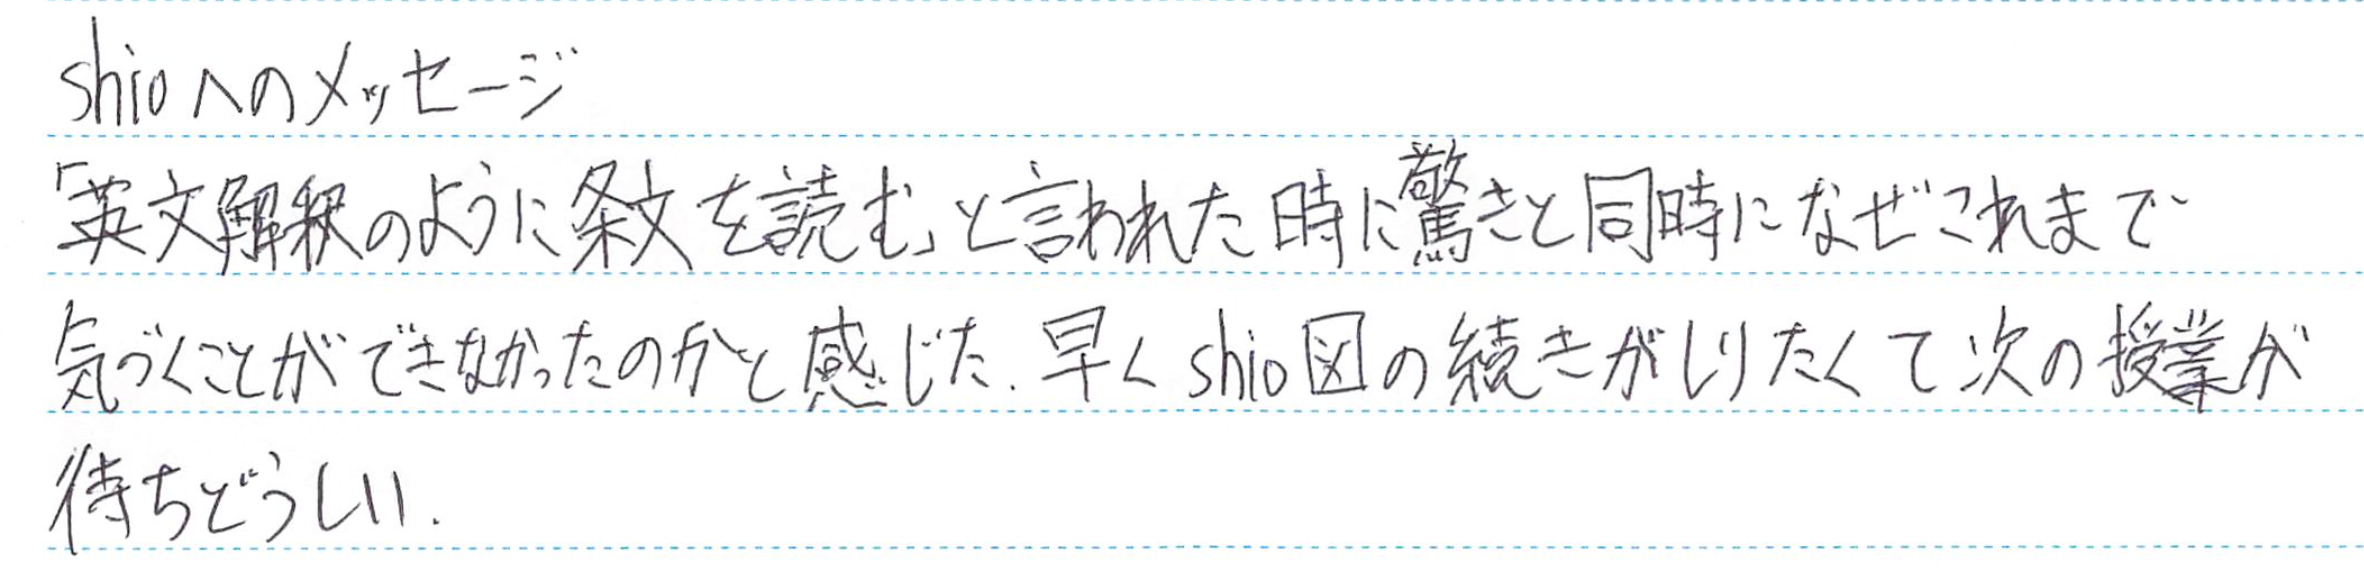 shioへのメッセージ
「英文解釈のように条文を読む」と言われた時に驚きと同時になぜこれまで
気づくことができなかったのかと感じた. 早くshio図の続きがしりたくて次の授業が
待ちどうしい.